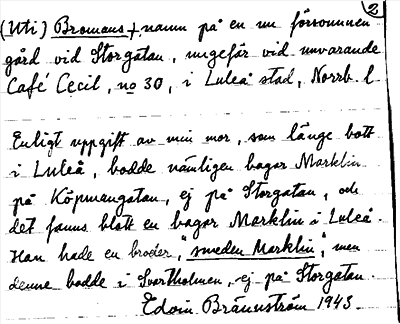 2
(Uti) Bromans + namn på en nu försvunnen
gård vid Storgatan, ungefär vid nuvarande
Café Cecil, no 30, i Luleå stad, Norrb. l.
Enligt uppgift av min mor, som länge bott
i Luleå, bodde nämligen bagar Marklin
på Köpmangatan, ej på Storgatan, och
det fanns blott en bagar Marklin i Luleå.
Han hade en broder, "smeden Marklin", men
denne bodde i Svartholmen, ej på Storgatan.
Edvin Brännström 1943.